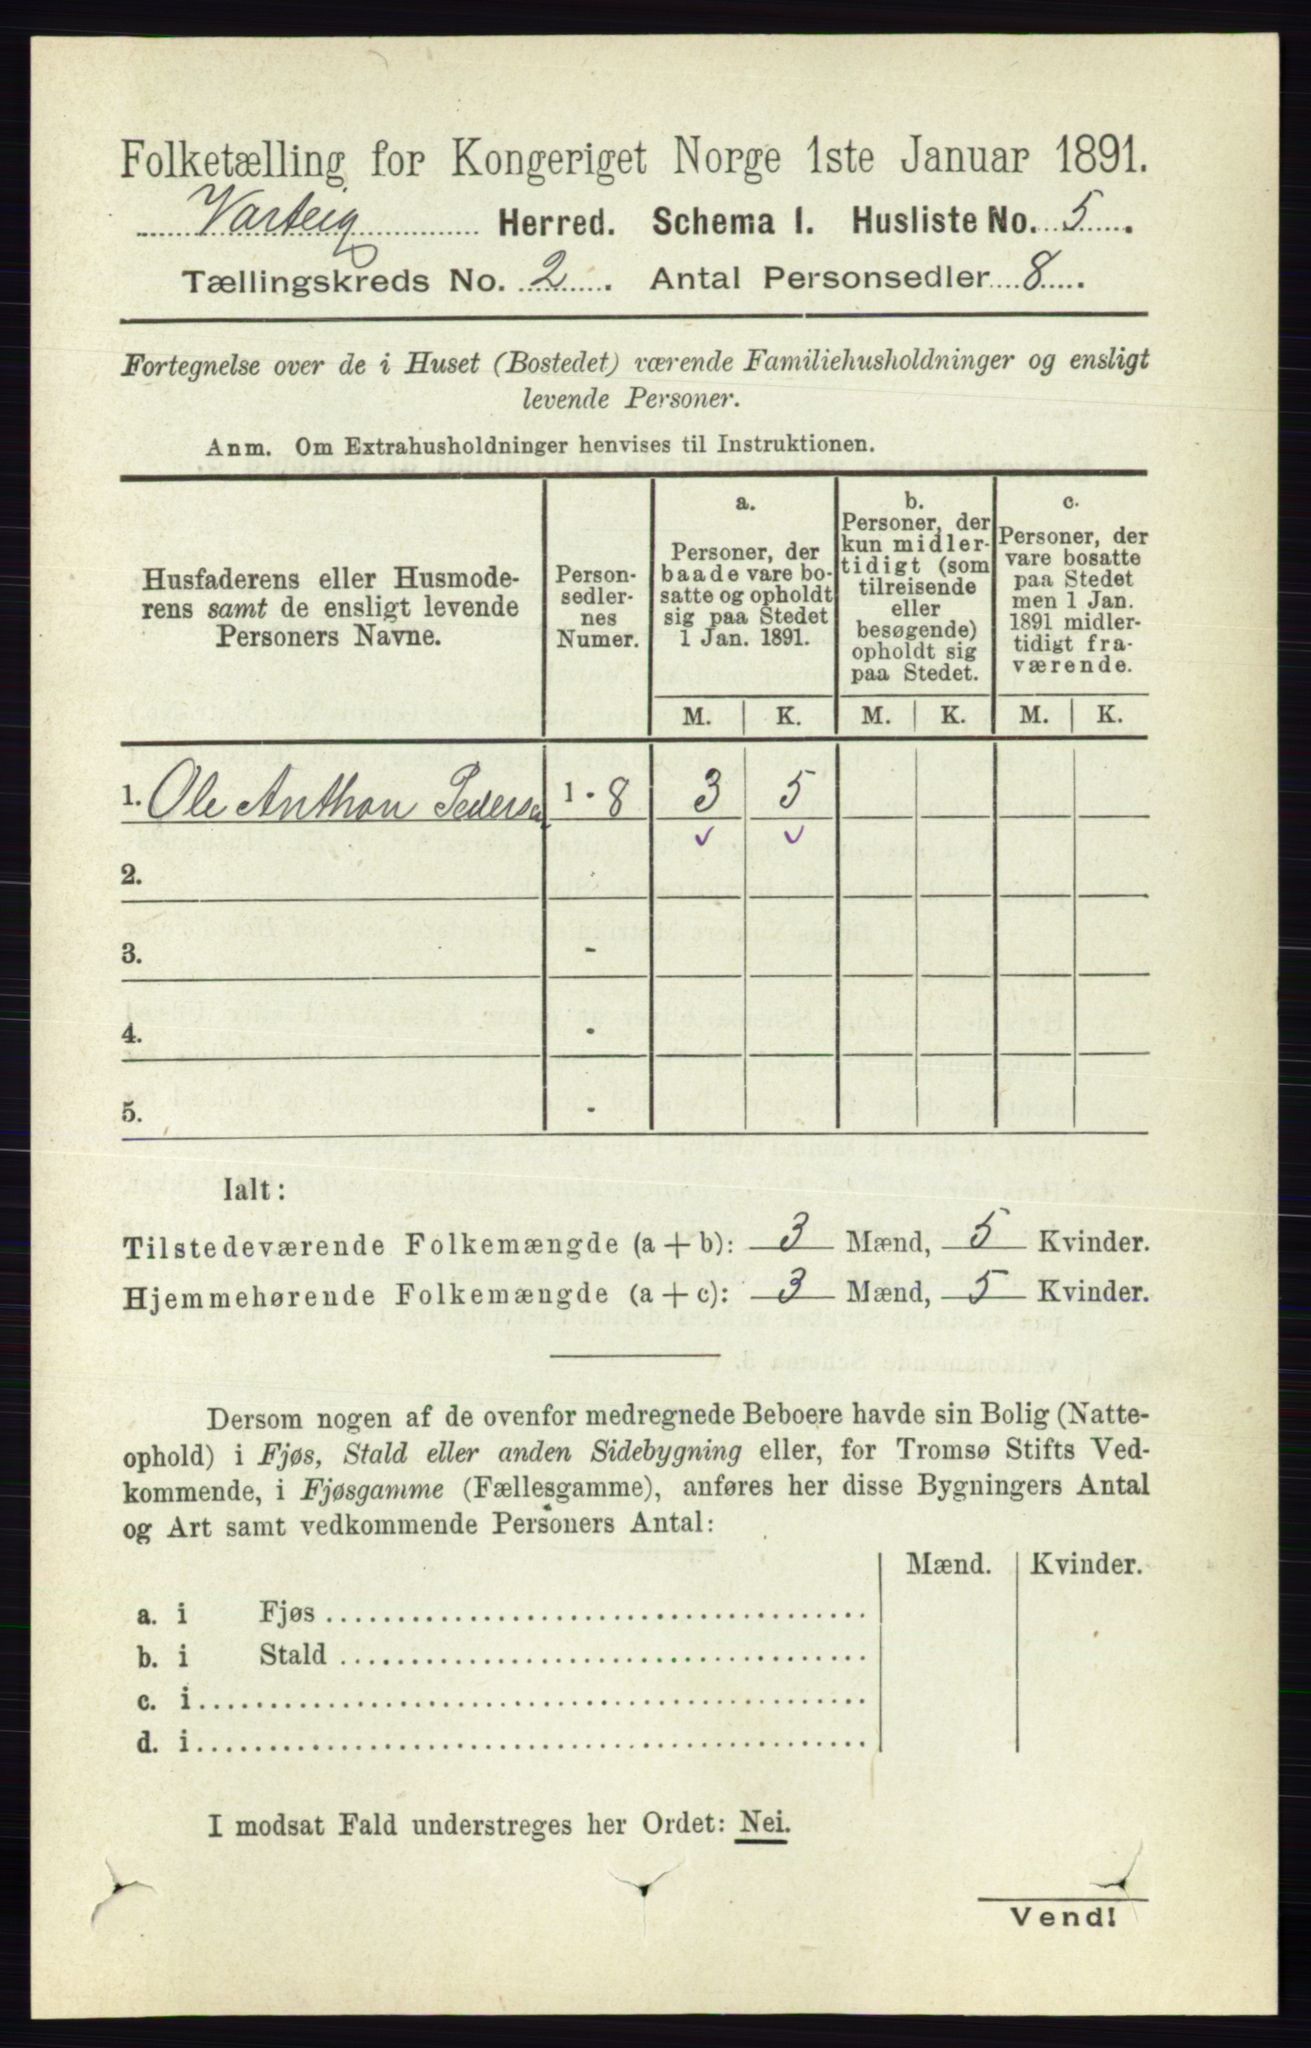 Folketælling for Kongeriget Norge 1ste Januar 1891.
Varteig Herred. Schema I. Husliste No. 5.
Tællingskreds No. 2. Antal Personsedler 8.
Fortegnelse over de i Huset (Bostedet) værende Familiehusholdninger og ensligt
levende Personer.
Anm. Om Extrahusholdninger henvises til Instruktionen.
Husfaderens eller Husmode-
rens samt de ensligt levende
Personers Navne.
Person-
sedler-
nes
Numer.
a.
Personer, der
baade vare bo-
satte og opholdt
sig paa Stedet
1 Jan. 1891.
b.
Personer, der
kun midler-
tidigt (som
tilreisende
eller
besøgende)
opholdt sig
paa Stedet.
c.
Personer, der
vare bosatte
paa Stedet
men 1 Jan.
1891 midler-
tidigt fra-
værende.
M. K. M. K. M. K.
1. Ole Anthon Pedersen 1 - 8 3 5
2.
3. -
4. -
5. -
Ialt:
Tilstedeværende Folkemængde (a + b): 3 Mænd, 5 Kvinder.
Hjemmehørende Folkemængde (a + c): 3 Mænd, 5 Kvinder.
Dersom nogen af de ovenfor medregnede Beboere havde sin Bolig (Natte-
ophold) i Fjøs, Stald eller anden Sidebygning eller, for Tromsø Stifts Ved-
kommende, i Fjøsgamme (Fællesgamme), anføres her disse Bygningers Antal
og Art samt vedkommende Personers Antal:
Mænd. Kvinder.
a. i Fjøs
b. i Stald
c. i
d. i
I modsat Fald understreges her Ordet: Nei.
Vend!